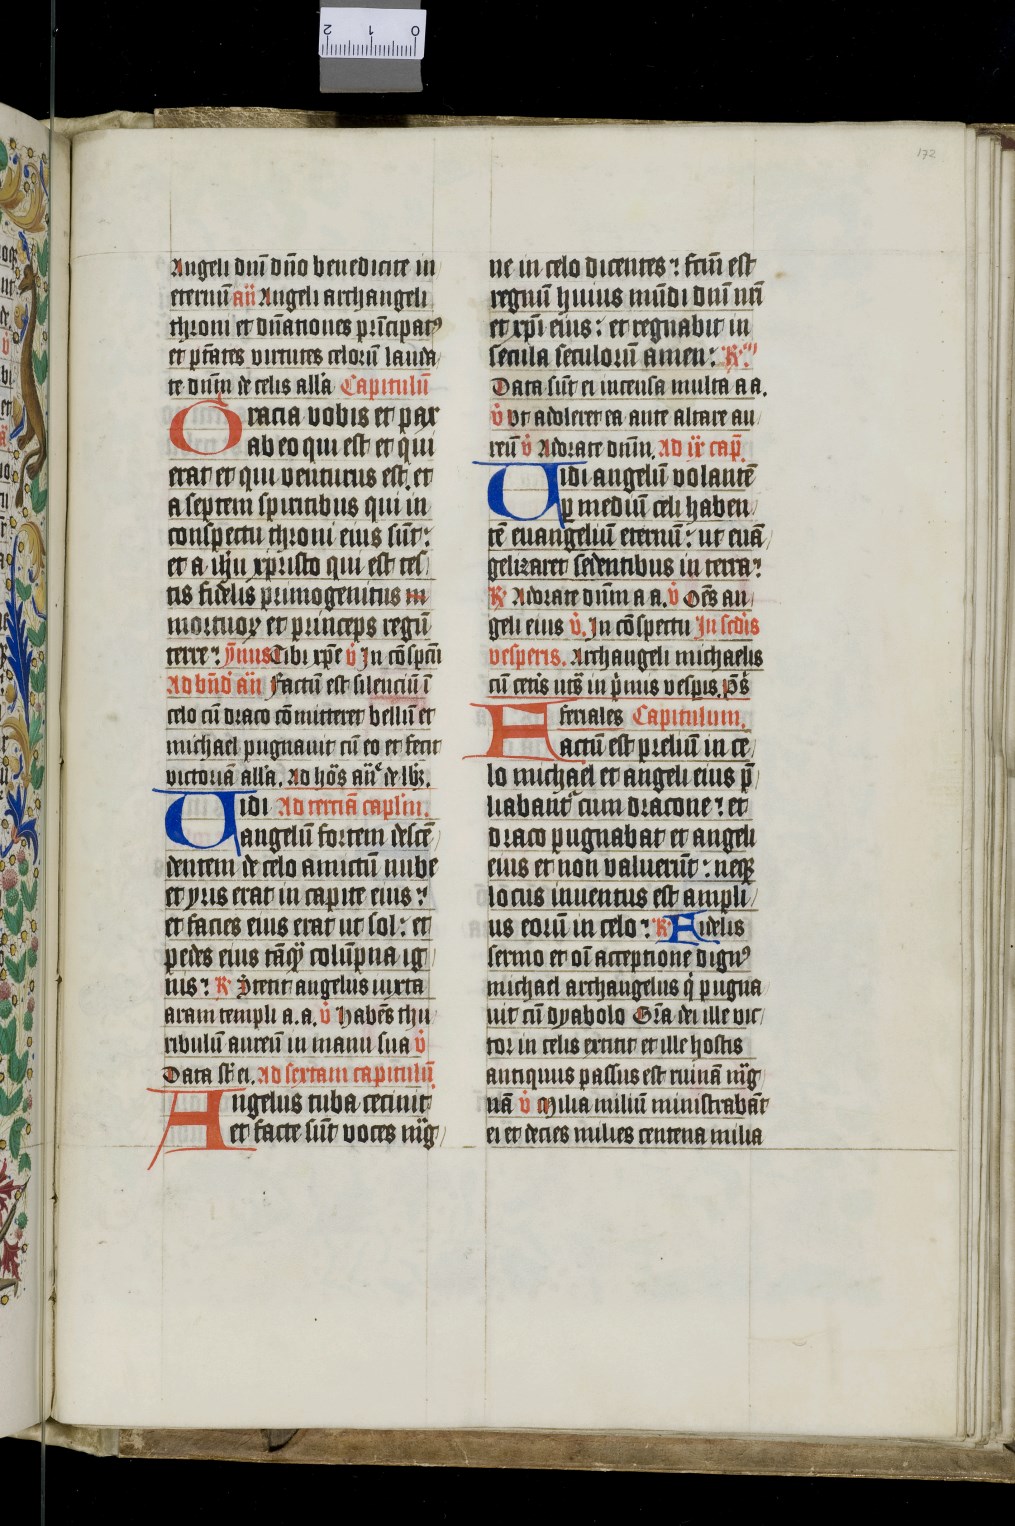 172
Angeli dñi dño benedicite in
eternũ añ Angeli archangeli
throni et dñationes prĩcipatꝰ
et ptãtes virtutes celorũ lauda
te dñm de celis allã Capitulũ
Gracia vobis et pax
ab eo qui est et qui
erat et qui venturus est. et
a septem spiritibus qui in
conspectu throni eius sũt:
et a ihũ xpristo qui est tes
tis fidelis primogenitus m
mortuoꝝ et princeps regũ
terre: ỹmus Tibi xpẽ v̇ In cõspctũ
Ad bñd añ Factũ est silenciũ ĩ
celo cũ draco cõmitteret bellũ et
michael pugnauit cũ eo et fecit
victoriã allã. Ad hõs añẽ de lbꝫ.
Uidi Ad terciã caplm.
angelũ fortem descẽ
dentem de celo amictũ nube
et yris erat in capite eius:
et facies eius erat ut sol: et
pedes eius tãqꝫ colũpna ig
nis: R̸ Stetit angelus iuxta
aram templi a.a. v̇ Habẽs thu
ribulũ aureũ in manu sua v̇
Data st̃ ei. Ad sextam capitulũ.
Angelus tuba cecinit
et facte sũt voces mg̃
ne in celo dicentes: fctũ est
regnũ huius mũdi dñi nr̃i
et xpĩ eius: et regnabit in
secula seculorũ amen: R̸m
Data sũt ei incensa multa a a.
v̇ Vt adoleret ea ante altare au
reũ v̇ Adorate dñm. Ad ix cap̃.
Uidi angelũ volantẽ
ꝑ mediũ celi haben
tẽ euangeliũ eternũ: ut euã
gelizaret sedentibus in terra:
R̸ Adorate dñm a a. v̇ Oẽs an
geli eius v̇. In cõspectu In scd̃is
vesperis. Archangeli michaelis
cũ ceti̾s ut̾s in p̃mis vespis. p̃s̾
feriales Capitulum.
Factũ est preliũ in ce
lo michael et angeli eius p̃
liabant̾ cum dracone: et
draco pugnabat et angeli
eius et non valuerũt: neqꝫ
locus inuentus est ampli
us eorũ in celo: R̸ Fidelis
sermo et oĩ acceptione dignꝰ
michael archangelus q̇ pugna
uit cũ dyabolo Grã dei ille vic
tor in celis extitit et ille hostis
antiquus passus est ruinã mg̃
nã v̇ Milia miliũ ministrabãt
ei et decies milies centena milia